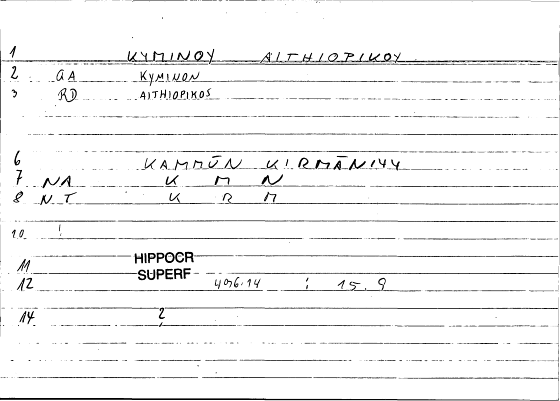 1 KYMINOY AITHIOPIKOY
2 GA KYMINON
3 RD AITHIOPIKOS
6 KAMMŪN KIRMĀNIYY
7 NA K M N
8 N.T K R M
10 !
11 HIPPOCR
SUPERF
12 406.14 : 15.9
14 ?